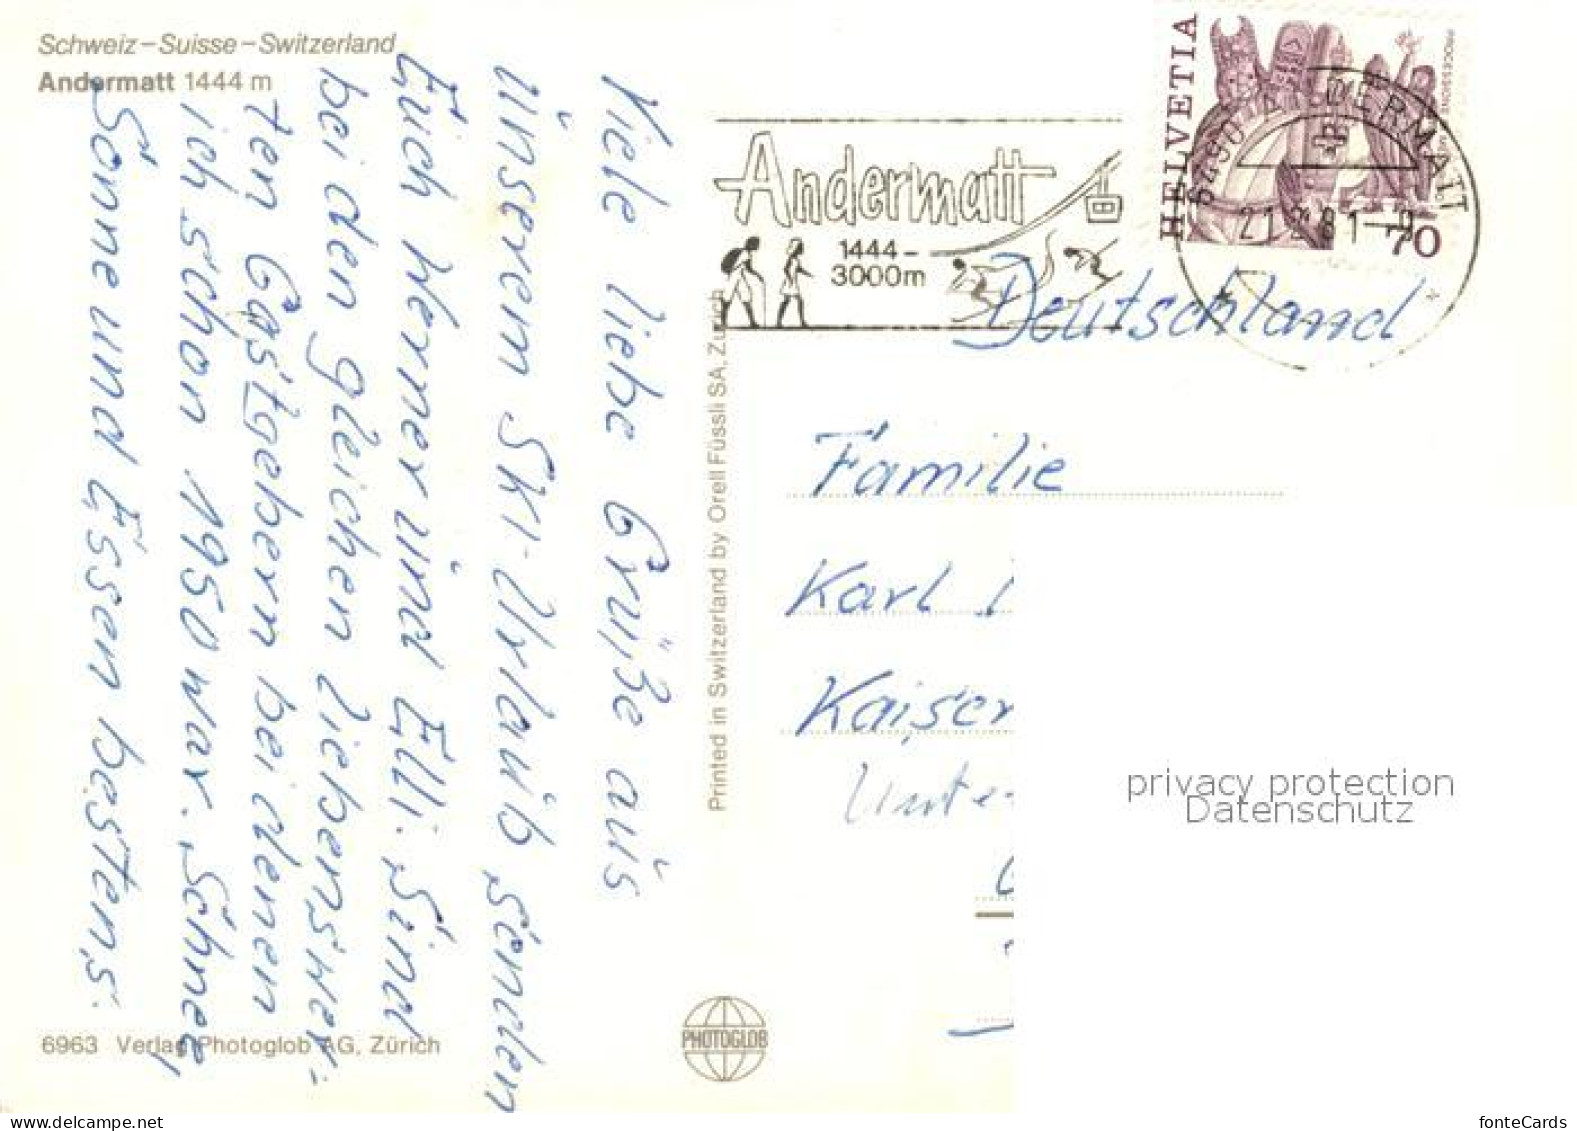 Schweiz – Suisse – Switzerland
Andermatt 1444 m
Viele liebe Grüße aus
Unserem Ski-Urlaub senden
Euch Werner und Elli. Sind
bei den gleichen liebenswer-
ten Gastgebern bei denen
ich schon 1950 war. Schnee,
Sonne und Essen bestens.
6963 Verlag Photoglob AG, Zürich
PHOTOGLOB
Printed in Switzerland by Orell Füssli SA, Zurich
Andermatt
1444 –
3000m
HELVETIA
70
6490 ANDERMATT
21. 81
Deutschland
Familie
Karl
Kaiser
Unte-
privacy protection
Datenschutz
www.delcampe.net
fonteCards